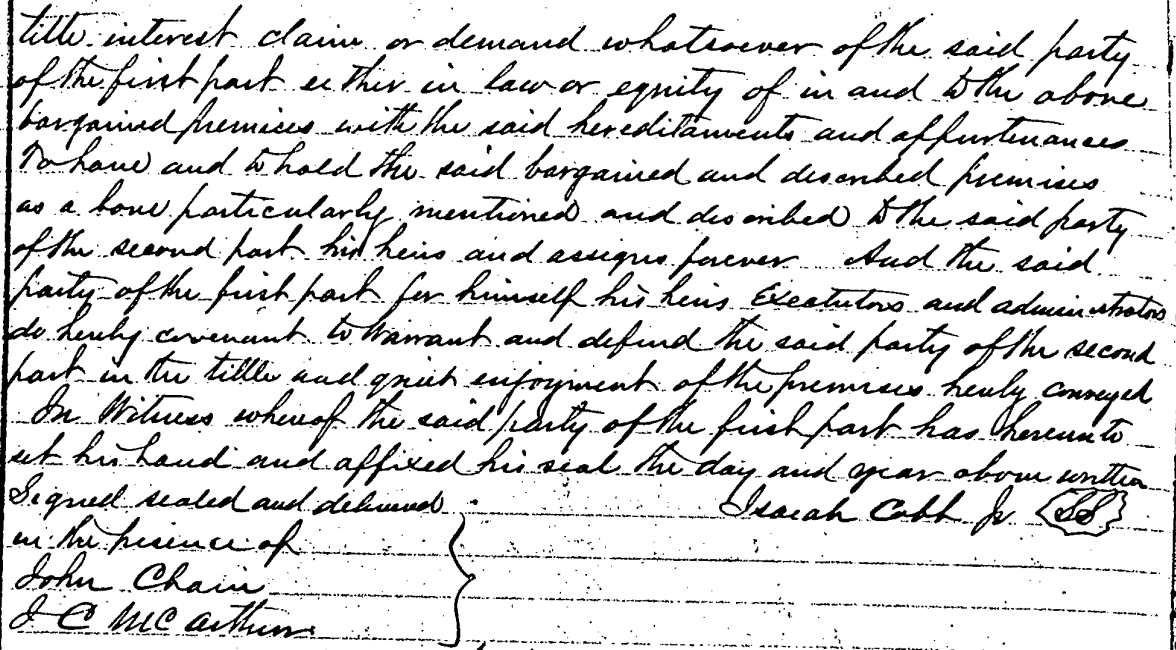 title interest claim or demand whatsoever of the said party
of the first part either in law or equity of in and to the above
bargained premices with the said hereditaments and appurtenances
To have and to hold the said bargained and described premises
as above particularly mentioned and described to the said party
of the second part his heirs and assigns forever And the said
party of the first part for himself his heirs Exeatutors and administrators
do hereby covenant to Warrant and defend the said party of the second
part in the tittle and quiet enjoyment of the premises hereby conveyed
In Witness whereof the said party of the first part has hereunto
set his hand and affixed his seal the day and year above written
Signed sealed and delivered Isaiah Cobb Jr SS
in the presence of
John Chain
J C McArthur